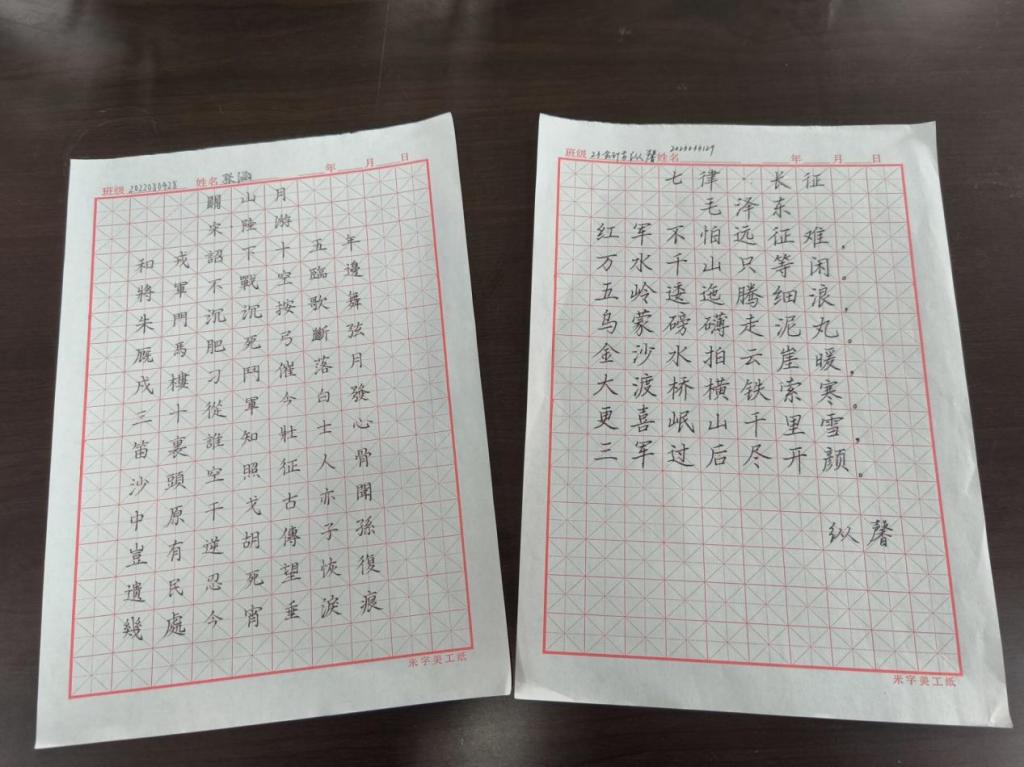 班级 2022080428 姓名 年 月 日
關山月
宋·陸游
和戎詔下十五年
將軍不戰空臨邊
朱門沉沉按歌舞
厩馬肥死弓斷弦
戍樓刁鬥催落月
三十從軍今白發
笛裏誰知壯士心
沙頭空照征人骨
中原干戈古亦聞
豈有逆胡傳子孫
遺民忍死望恢復
幾處今宵垂淚痕
米字美工纸
班级 纵馨 姓名 年 月 日
七律·长征
毛泽东
红军不怕远征难，
万水千山只等闲。
五岭逶迤腾细浪，
乌蒙磅礴走泥丸。
金沙水拍云崖暖，
大渡桥横铁索寒。
更喜岷山千里雪，
三军过后尽开颜。
纵馨
米字美工纸